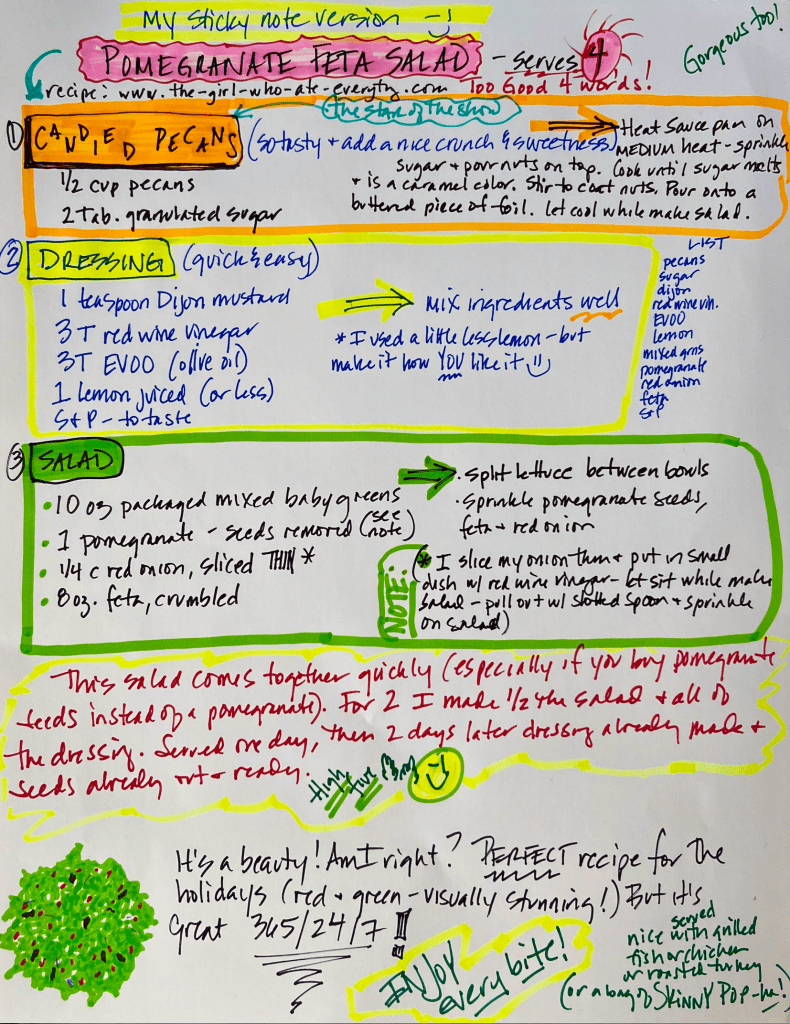 My sticky note version
POMEGRANATE FETA SALAD - serves 4
Gorgeous too!
recipe: www.the-girl-who-ate-everythg.com Too Good 4 words!
the star of the show
① CANDIED PECANS (so tasty + add a nice crunch & sweetness)
1/2 cup pecans
2 Tab. granulated sugar
Heat sauce pan on
MEDIUM heat - sprinkle
sugar + pour nuts on top. Cook until sugar melts
+ is a caramel color. Stir to coat nuts. Pour onto a
buttered piece of foil. Let cool while make salad.
② DRESSING (quick & easy)
1 teaspoon Dijon mustard
3 T red wine vinegar
3T EVOO (olive oil)
1 lemon juiced (or less)
S+P - to taste
mix ingredients well
* I used a little less lemon - but
make it how YOU like it
LIST
pecans
sugar
dijon
red wine vin.
EVOO
lemon
mixed grns
pomegranate
red onion
feta
S+P
③ SALAD
• 10 oz packaged mixed baby greens
• 1 pomegranate - seeds removed (see note)
• 1/4 c red onion, sliced THIN *
• 8 oz. feta, crumbled
• split lettuce between bowls
• Sprinkle pomegranate seeds,
feta + red onion
NOTE:
(* I slice my onion then + put in small
dish w/ red wine vinegar - let sit while make
salad - pull out w/ slotted spoon + sprinkle
on salad)
This salad comes together quickly (especially if you buy pomegranate
seeds instead of a pomegranate). For 2 I made 1/2 the salad + all of
the dressing. Served one day, then 2 days later dressing already made +
seeds already out + ready.
High Five
It's a beauty! Am I right? PERFECT recipe for the
holidays (red + green - visually stunning!) But it's
Great 365/24/7!
ENJOY
every bite!
served
nice with grilled
fish or chicken
or roasted turkey
(or a bag of SKINNY POP - ha!)